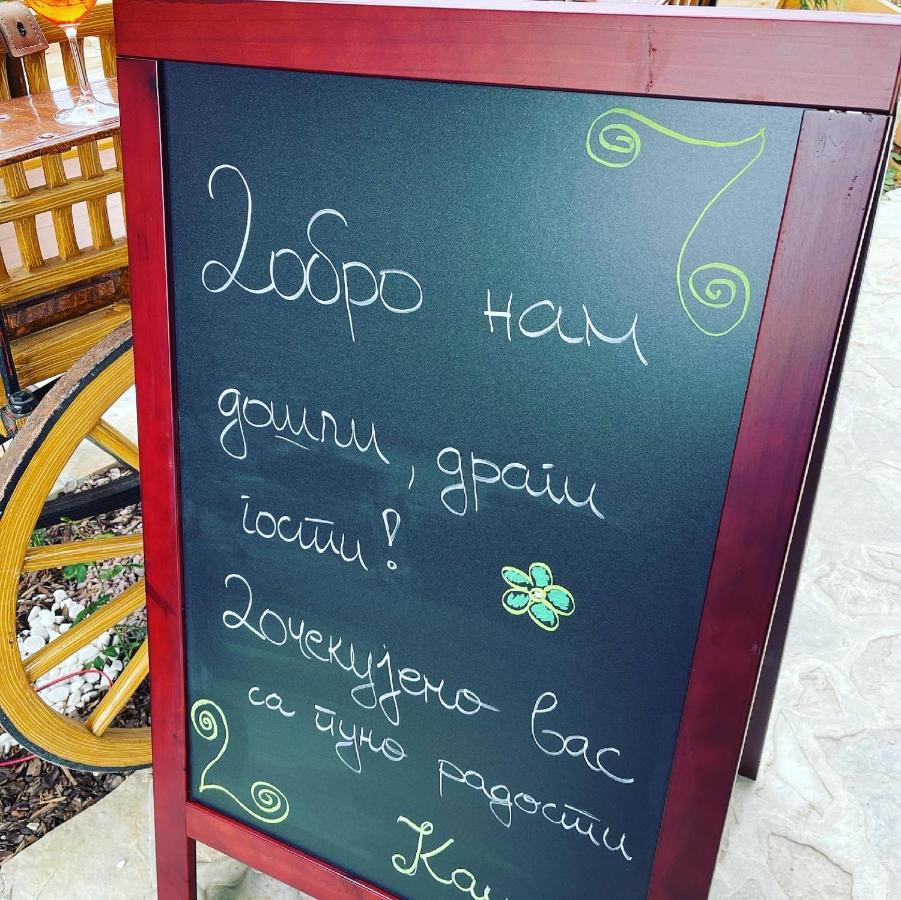 Добро нам
дошли, драги
гости!
Дочекујемо вас
са пуно радости